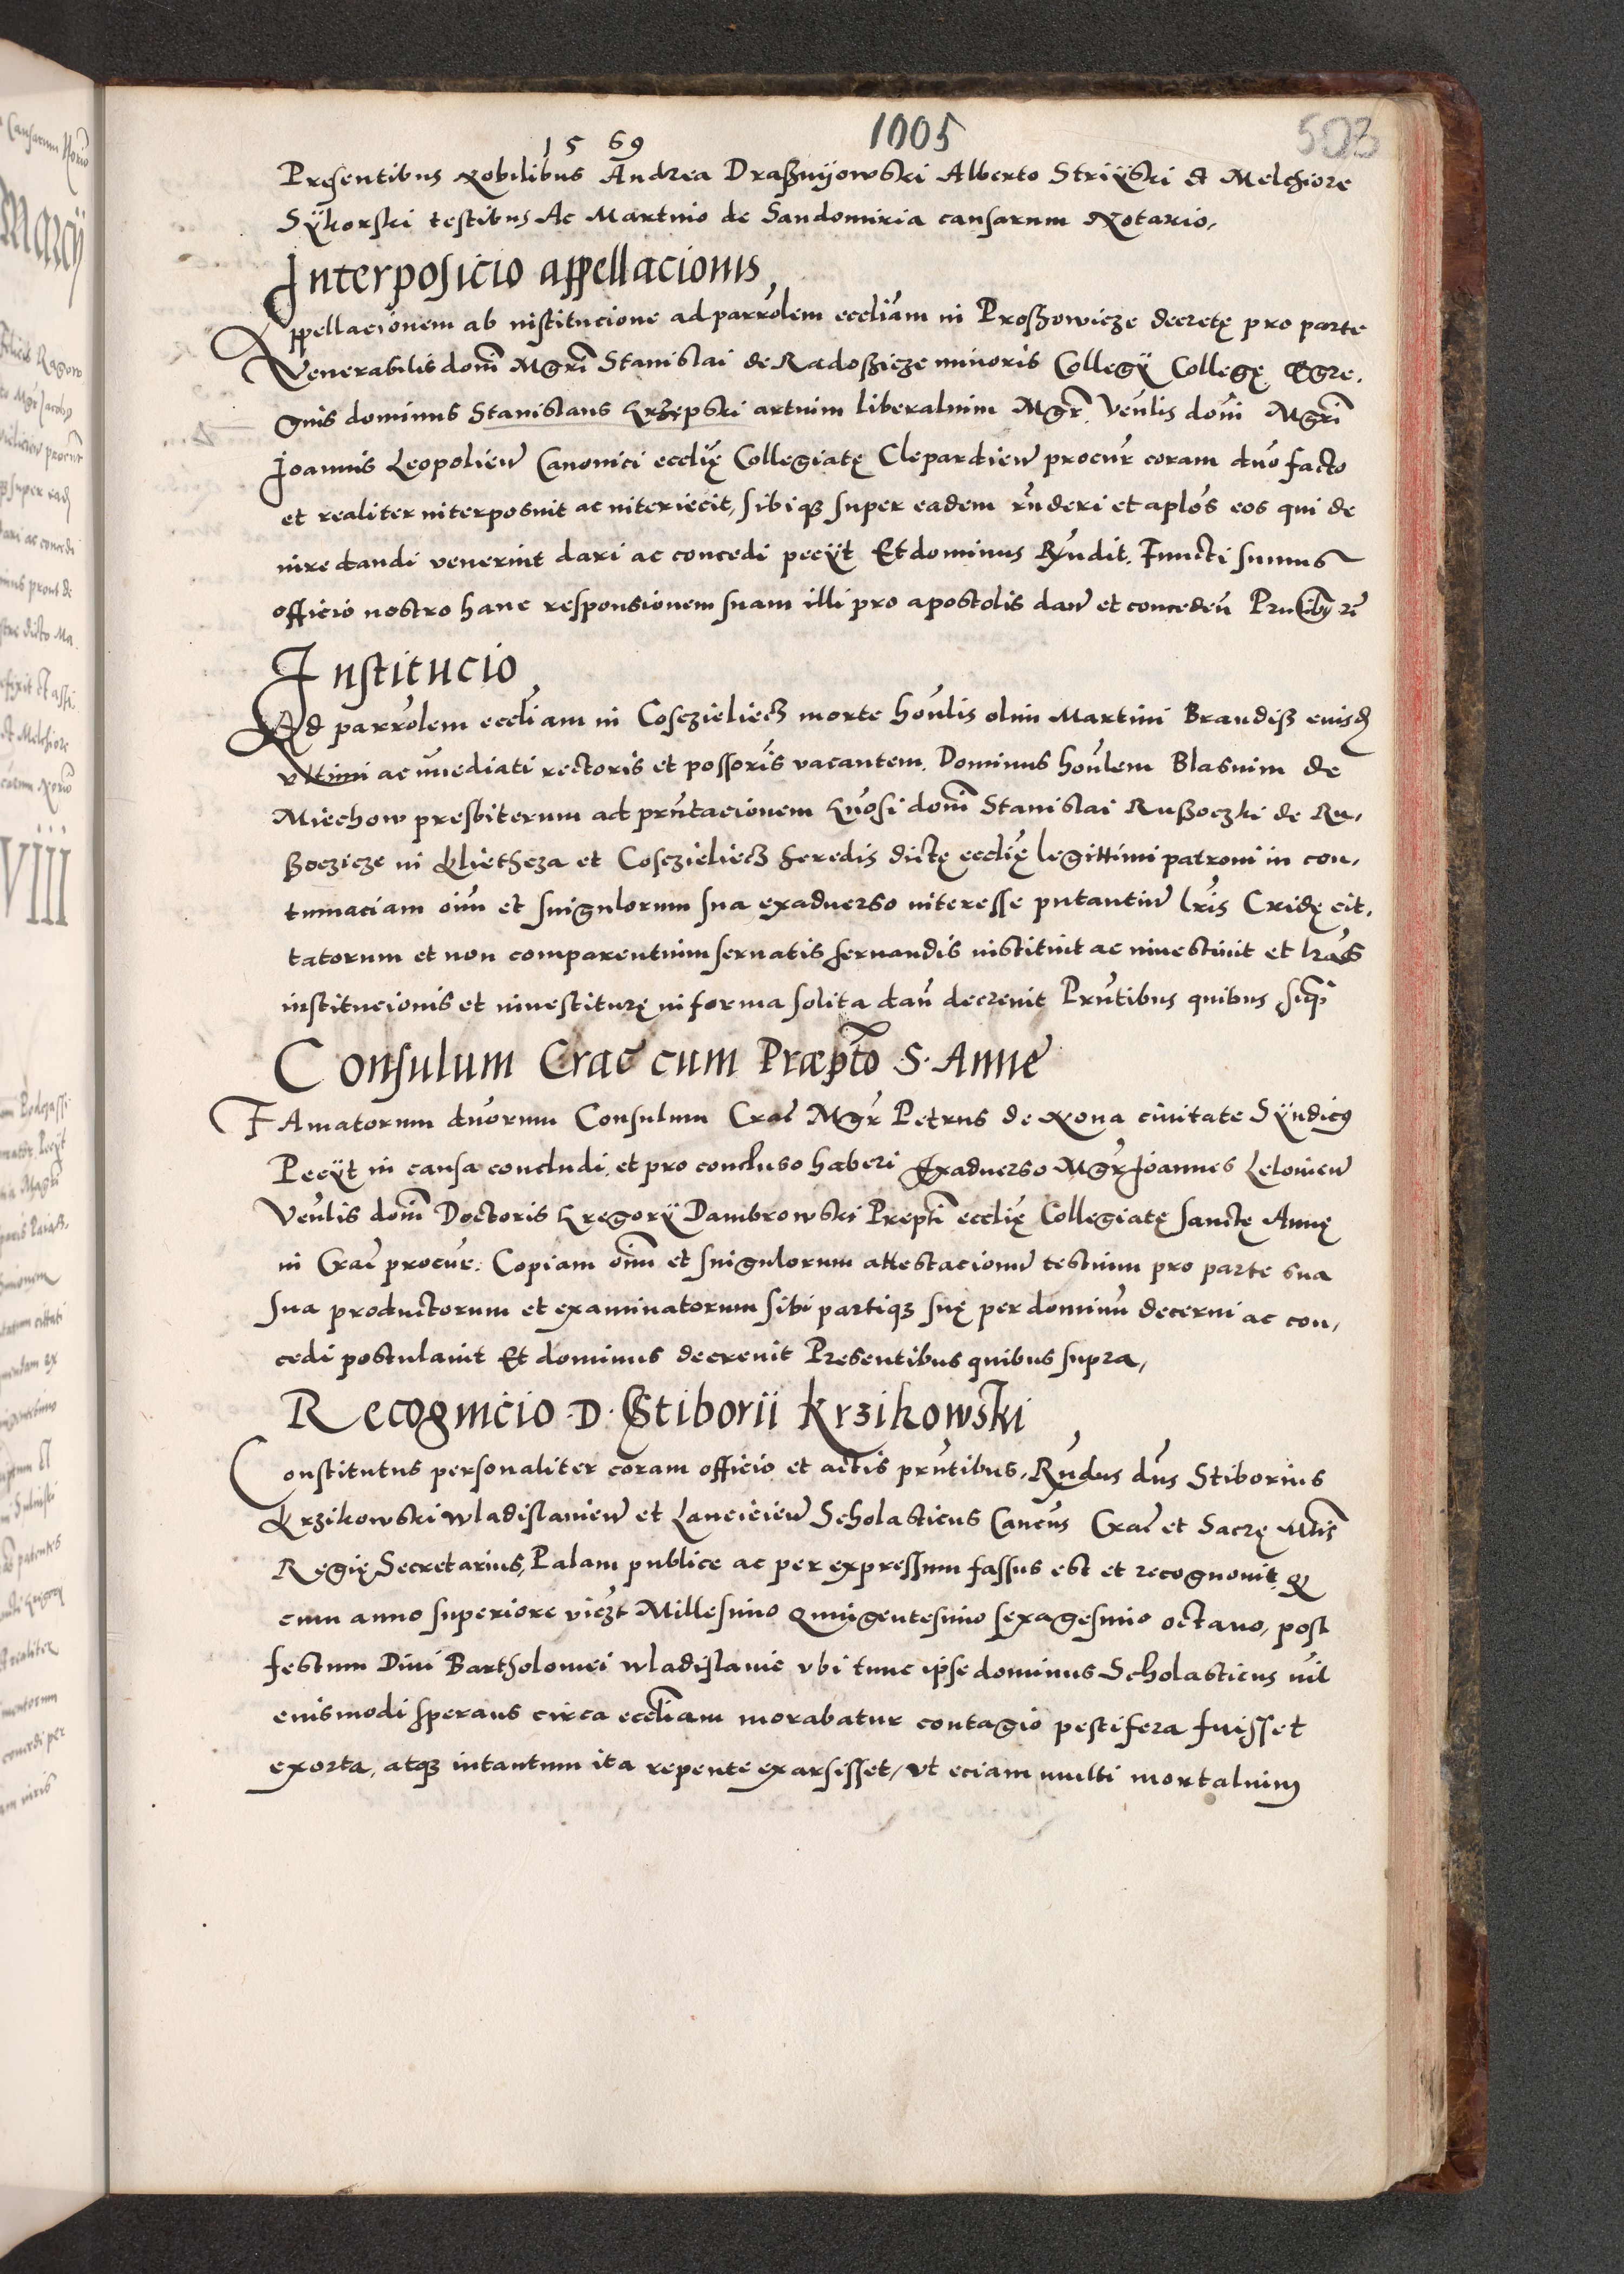 1569
1005
503
Presentibus Nobilibus Andrea Draßnijowski Alberto Striÿski et Melchiore
Sÿkorski testibus Ac Martino de Sandomiria causarum Notario,
Interposicio appellacionis
Appellacionem ab institucione ad parrolem eccliam in Proßowicze decretę pro parte
Venerabilis domi Mgri Stanislai de Radoßicze minoris Collegÿ Collegę Egre,
gius dominus Stanislaus Krzepski artium liberalium Mgr. Venlis domi Mgri
Joannis Leopolien Canonici ecclię Collegiatę Clepardien procur coram dno facto
et realiter interposuit ac interiecit, sibiq3 super eadem rnderi et aplos eos qui de
iure dandi venerint dari ac concedi peciit Et dominus Rndit. Functi sumus
officio nostro hanc responsionem suam illi pro apostolis dan et conceden Prntibus
Institucio
Ad parrolem eccliam in Cosczieliecz morte honlis olim Martini Brandiß eiusd
vltimi ac imediati rectoris et possoris vacantem. Dominus honlem Blasium de
Miechow presbiterum ad prntacionem Gnosi domi Stanislai Rußoczki de Ru,
ßoczicze in Klietheza et Cosczieliecz heredis dictę ecclię legittimi patroni in con,
tumaciam oim et singulorum sua exaduerso interesse putantiu lris Cridę cit,
tatorum et non comparentium seruatis seruandis instituit ac inuestiuit et lras
institucionis et inuestiturę in forma solita dan decreuit Prntibus quibus sup
Consulum Crac cum Præpto S. Anne
FAmatorum dnorum Consulum Crac Mgr Petrus de Nona ciuitate Sÿndicus
Peciit in causa concludi, et pro concluso haberi Exaduerso Mgr Joannes Lelouien
Venlis domi Doctoris Gregorÿ Dambrowski Prepti ecclię Collegiatę sanctę Annę
in Crac procur. Copiam oim et singulorum attestacionu testium pro parte sua
sua productorum et examinatorum sibi partiq3 suę per dominu decerni ac con,
cedi postulauit Et dominus decreuit Presentibus quibus supra,
Recognicio D. Stiborii Krzikowski
Constitutus personaliter coram officio et actis prntibus, Rndus dns Stiborius
Krzikowski wladislauien et Lancicien Scholasticus Cancus Crac et Sacrę Mtis
Regię Secretarius, Palam publice ac per expressum fassus est et recognouit, q
cum anno superiore viczt Millesimo quingentesimo sexagesimo octauo, post
festum Diui Bartholomei wladislauie vbi tunc ipse dominus Scholasticus nil
eiusmodi sperans circa eccliam morabatur contagio pestifera fuisset
exorta, atq3 intantum ita repente exarsisset, vt eciam multi mortalium